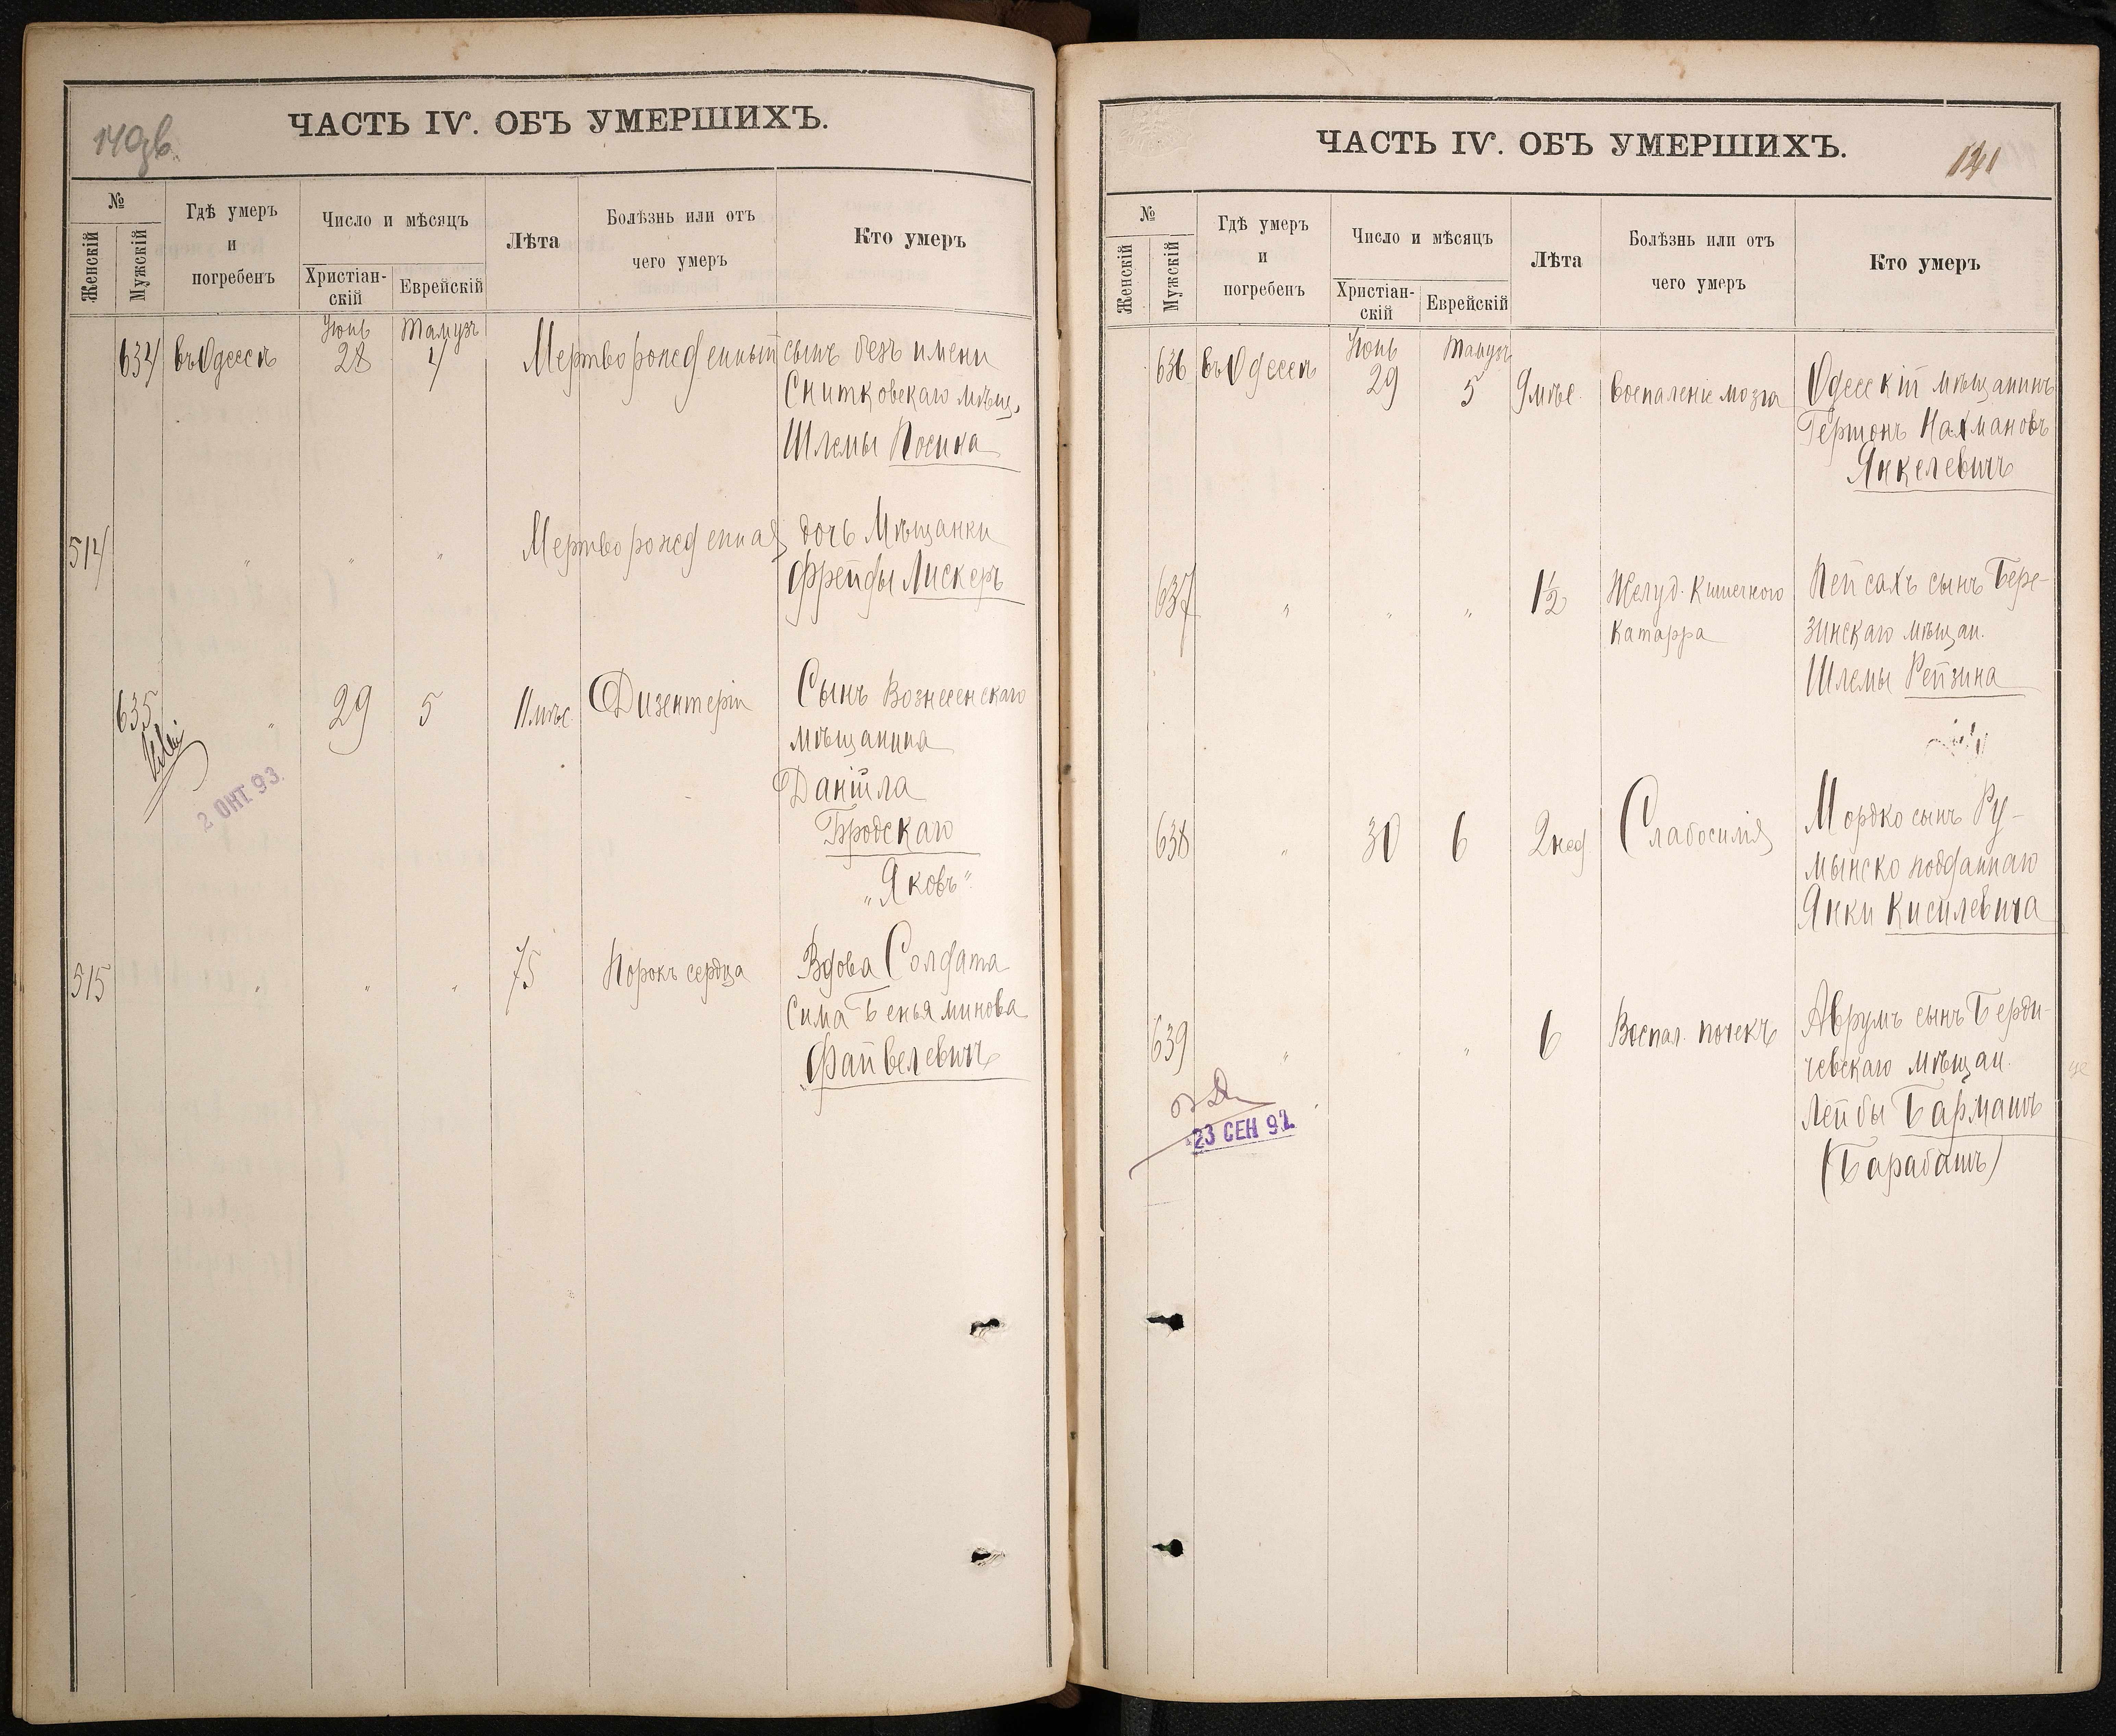 140 об.
ЧАСТЬ IV. ОБЪ УМЕРШИХЪ.
№
Женскій
Мужскій
Гдѣ умеръ
и
погребенъ
Число и мѣсяцъ
Христіан-
скій
Еврейскій
Лѣта
Болѣзнь или отъ
чего умеръ
Кто умеръ
Іюнь Тамузъ
634 въ Одессѣ 28 4 Мертворожденный сынъ безъ имени
Снитковскаго мѣщ.
Шлемы Носина
514 " " " Мертворожденная дочь Мѣщанки
Фрейды Лискеръ
635 " 29 5 11 мѣс. Дизентерія Сынъ Вознесенскаго
мѣщанина
Даніила
Бродскаго
„Яковъ"
2 ОКТ. 93.
515 " " " 75 Порокъ сердца Вдова Солдата
Сима Беньяминова
Файвелевичъ
ЧАСТЬ IV. ОБЪ УМЕРШИХЪ.
141
№
Женскій
Мужскій
Гдѣ умеръ
и
погребенъ
Число и мѣсяцъ
Христіан-
скій
Еврейскій
Лѣта
Болѣзнь или отъ
чего умеръ
Кто умеръ
Іюнь Тамузъ
636 въ Одессѣ 29 5 9 мѣс. Воспаленіе мозга Одесскій мѣщанинъ
Гершонъ Нахмановъ
Янкелевичъ
637 " " " 1½ Желуд. Кишечного Пейсахъ сынъ Бере-
катарра зинскаго мѣщан.
Шлемы Рейзина
638 " 30 6 2 нед. Слабосилія Мордко сынъ Ру-
мынско подданнаго
Янки Кисилевича
639 " " 6 Воспал. почекъ Аврумъ сынъ Берди-
чевскаго мѣщан.
Лейбы Бармашъ
(Барабашъ)
23 СЕН 92.